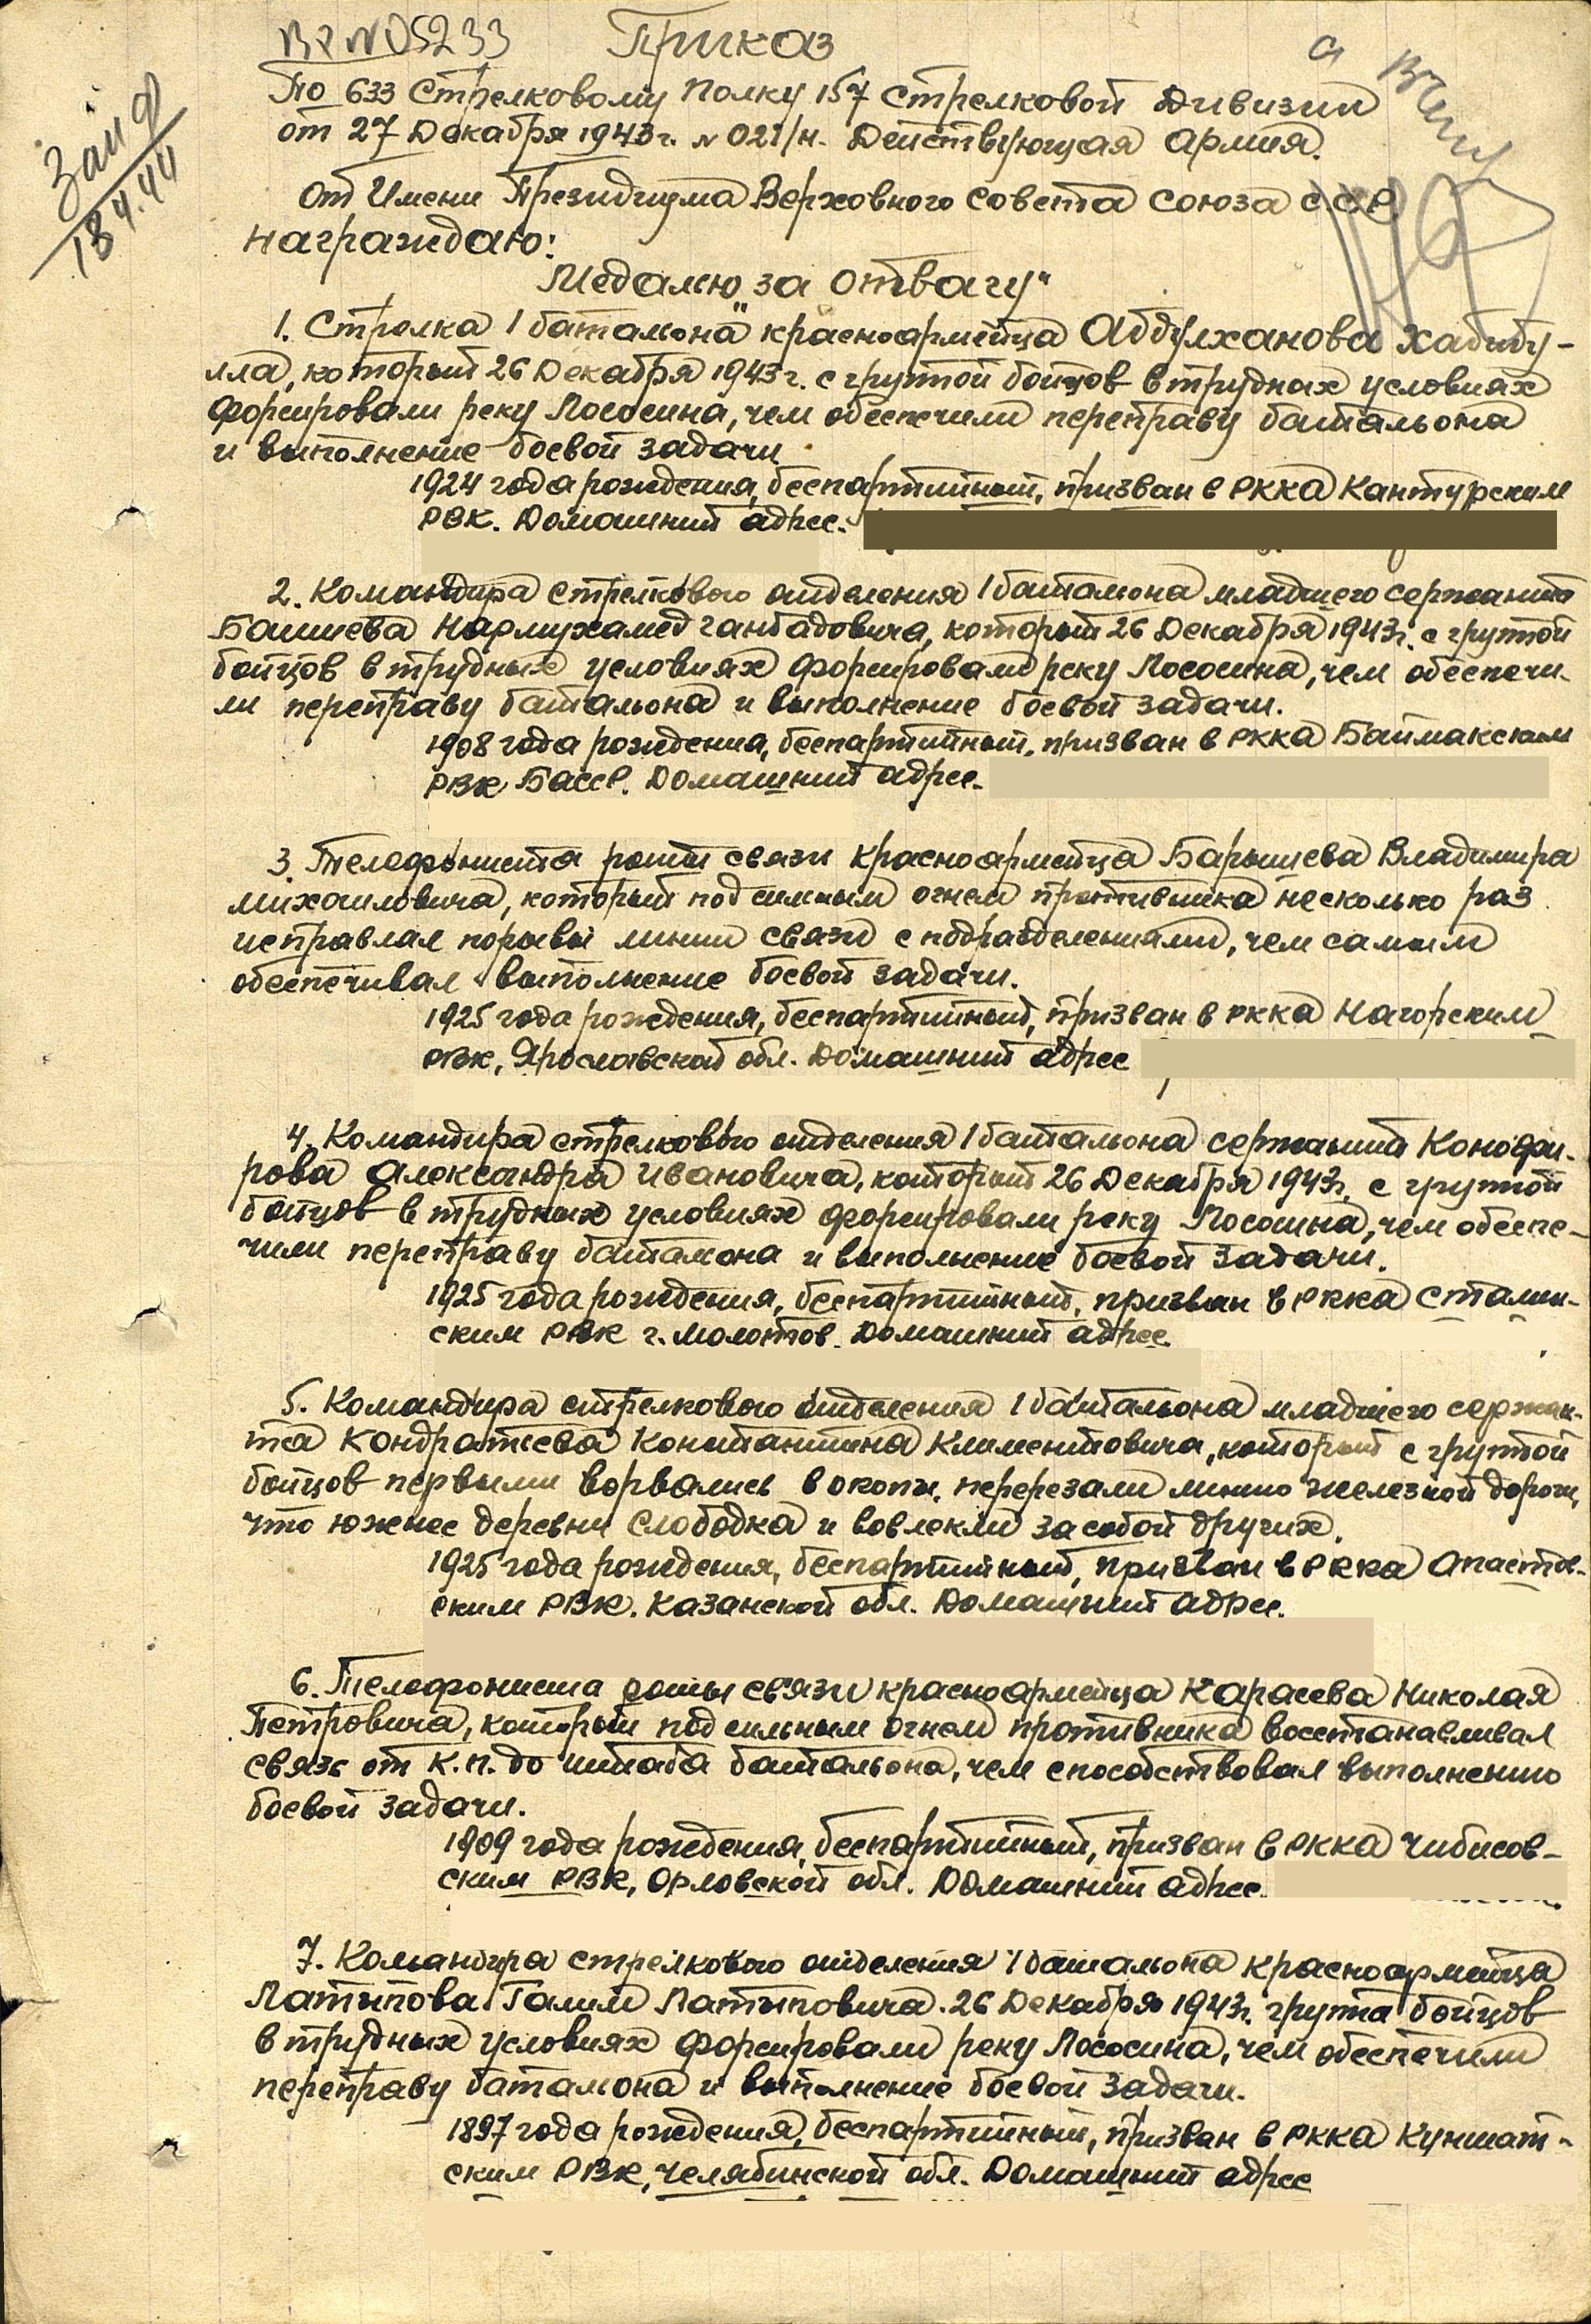 ВхN05233 Приказ
По 633 Стрелковому Полку 157 Стрелковой Дивизии
от 27 Декабря 1943 г. N 021/н. Действующая Армия.
Зап
18.4.44
От Имени Президиума Верховного Совета Союза С.С.Р.
награждаю:
Медалью „за отвагу"
1. Стрелка 1 батальона красноармейца Абдулханова Хабибу-
лла, который 26 Декабря 1943 г. с группой бойцов в трудных условиях
форсировали реку Лососина, чем обеспечили переправу батальона
и выполнение боевой задачи.
1924 года рождения, беспартийный, призван в РККА Кантурским
РВК. Домашний адрес.
2. Командира стрелкового отделения 1 батальона младшего сержанта
Баишева Нармухамед Гантадовича, который 26 Декабря 1943 г. с группой
бойцов в трудных условиях форсировали реку Лососина, чем обеспечи-
ли переправу батальона и выполнение боевой задачи.
1908 года рождения, беспартийный, призван в РККА Баймакским
РВК БАССР. Домашний адрес.
3. Телефониста роты связи красноармейца Барышева Владимира
Михаиловича, который под сильным огнем противника несколько раз
исправлял порывы линии связи с подразделениями, чем самым
обеспечивал выполнение боевой задачи.
1925 года рождения, беспартийный, призван в РККА Нагорским
РВК, Ярославской обл. Домашний адрес
4. Командира стрелкового отделения 1 батальона сержанта Конофи-
рова Александра Ивановича, который 26 Декабря 1943 г. с группой
бойцов в трудных условиях форсировали реку Лососина, чем обеспе-
чили переправу батальона и выполнение боевой задачи.
1925 года рождения, беспартийный, призван в РККА Сталин-
ским РВК г. Молотов. Домашний адрес.
5. Командира стрелкового отделения 1 батальона младшего сержан-
та Кондратьева Константина Климентовича, который с группой
бойцов первыми ворвались в окопы, перерезали линию железной дороги,
что южнее деревни Слободка и вовлекли за собой других.
1925 года рождения, беспартийный, призван в РККА Апастов-
ским РВК. Казанской обл. Домашний адрес.
6. Телефониста роты связи красноармейца Карасева Николая
Петровича, который под сильным огнем противника восстанавливал
связь от К.П. до штаба батальона, чем способствовал выполнению
боевой задачи.
1909 года рождения, беспартийный, призван в РККА Чибисов-
ским РВК, Орловской обл. Домашний адрес.
7. Командира стрелкового отделения 1 батальона красноармейца
Латыпова Галим Латыповича. 26 Декабря 1943 г. группа бойцов
в трудных условиях форсировали реку Лососина, чем обеспечили
переправу батальона и выполнение боевой задачи.
1897 года рождения, беспартийный, призван в РККА Куншат-
ским РВК, Челябинской обл. Домашний адрес